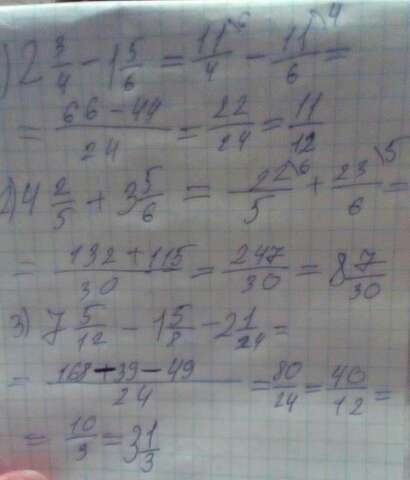 1) 2 3/4 - 1 5/6 = 11\6/4 - 11\4/6 =
= 66 - 44/24 = 22/24 = 11/12
2) 4 2/5 + 3 5/6 = 22\6/5 + 23\5/6 =
= 132 + 115/30 = 247/30 = 8 7/30
3) 7 5/12 - 1 5/8 - 2 1/24 =
= 168 - 39 - 49/24 = 80/24 = 40/12 =
= 10/3 = 3 1/3